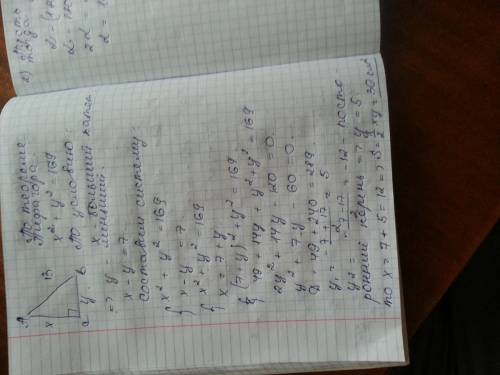 A
x
13
C y B
По теореме
Пифагора
x² + y² = 169
По условию:
x - больший катет
=> y - меньший.
x - y = 7
составим систему
{ x² + y² = 169
x - y = 7
{ x² + y² = 169
x = 7 + y
(7+y)² + y² = 169
49 + 14y + y² + y² = 169
2y² + 14y - 120 = 0
y² + 7y - 60 = 0
D = 49 + 240 = 289
y₁ = (-7+17)/2 = 5
y₂ = (-7-17)/2 = -12 - посто-
ронний корень => y = 5
то x = 7 + 5 = 12 => S = 1/2 xy = 30 см²
2)